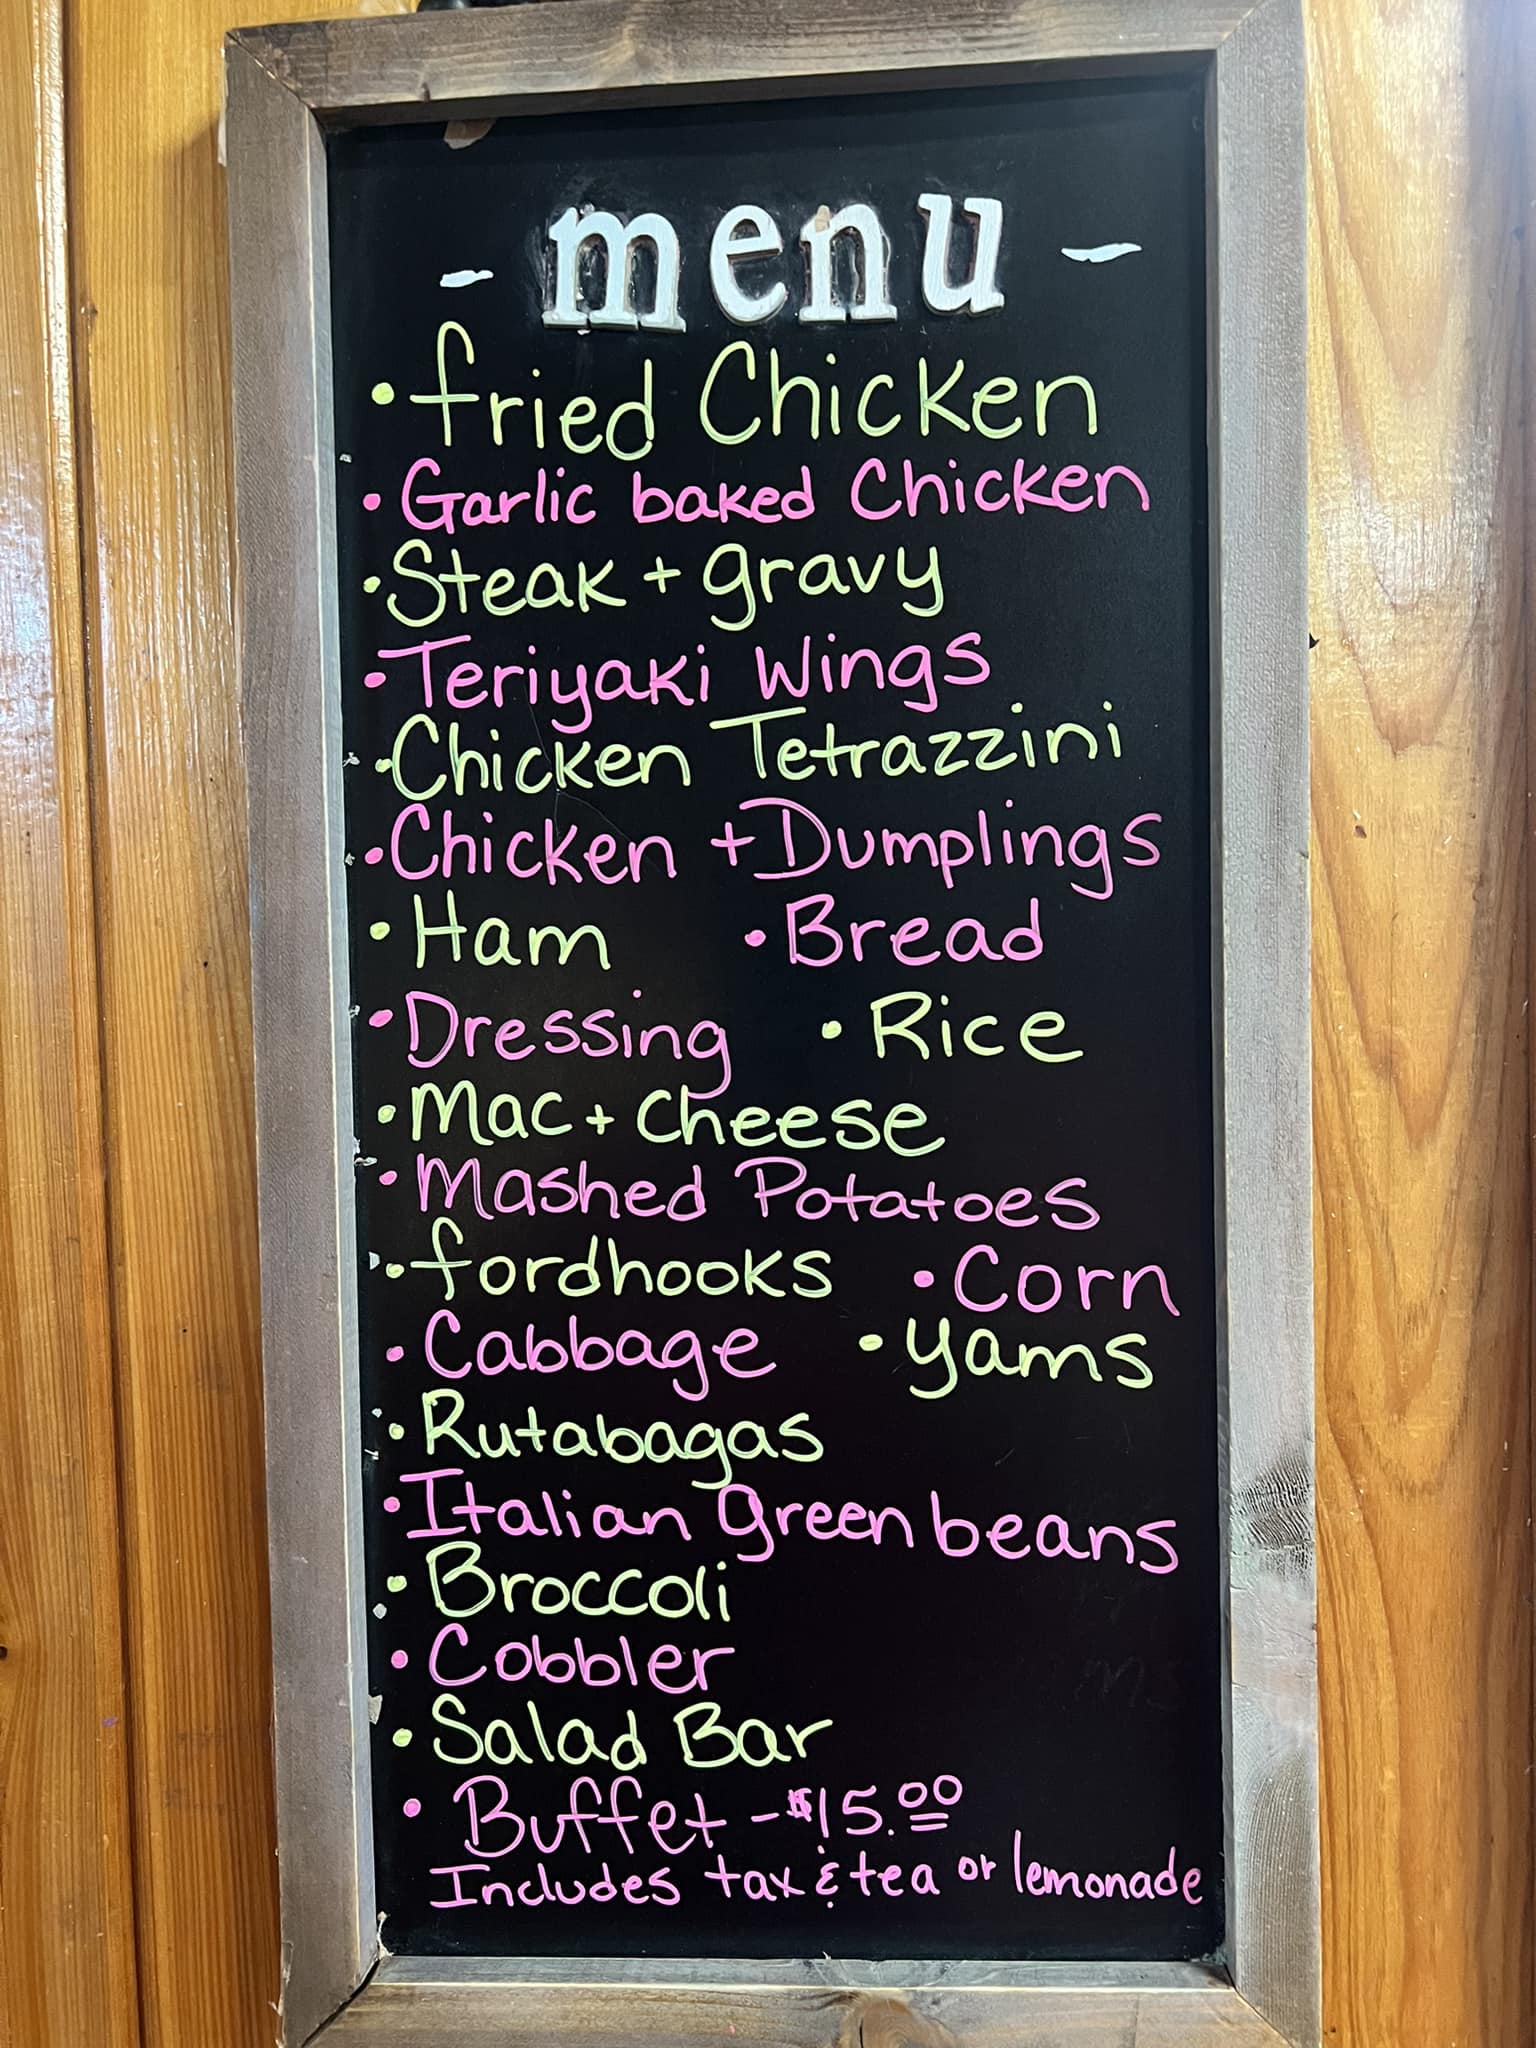 - menu -
• fried Chicken
• Garlic baked Chicken
• Steak + gravy
• Teriyaki Wings
• Chicken Tetrazzini
• Chicken + Dumplings
• Ham • Bread
• Dressing • Rice
• Mac + Cheese
• Mashed Potatoes
• fordhooks • Corn
• Cabbage • yams
• Rutabagas
• Italian green beans
• Broccoli
• Cobbler
• Salad Bar
• Buffet - $15.00
Includes tax & tea or lemonade